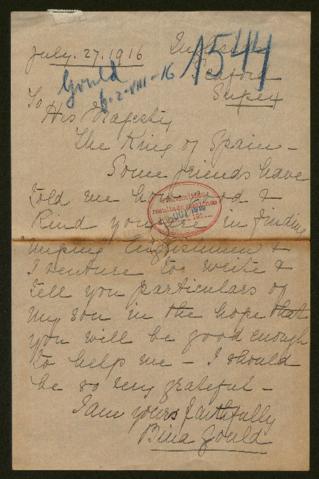 July. 27. 1916
1544
Gould
6-2-VIII-16
Sussex
To
His Majesty
The King of Spain -
Some friends have
told me how good &
kind you are in finding
missing Englishmen &
I venture to write &
tell you particulars of
my son in the hope that
you will be good enough
to help me - I should
be so very grateful -
I am yours faithfully
Bina Gould